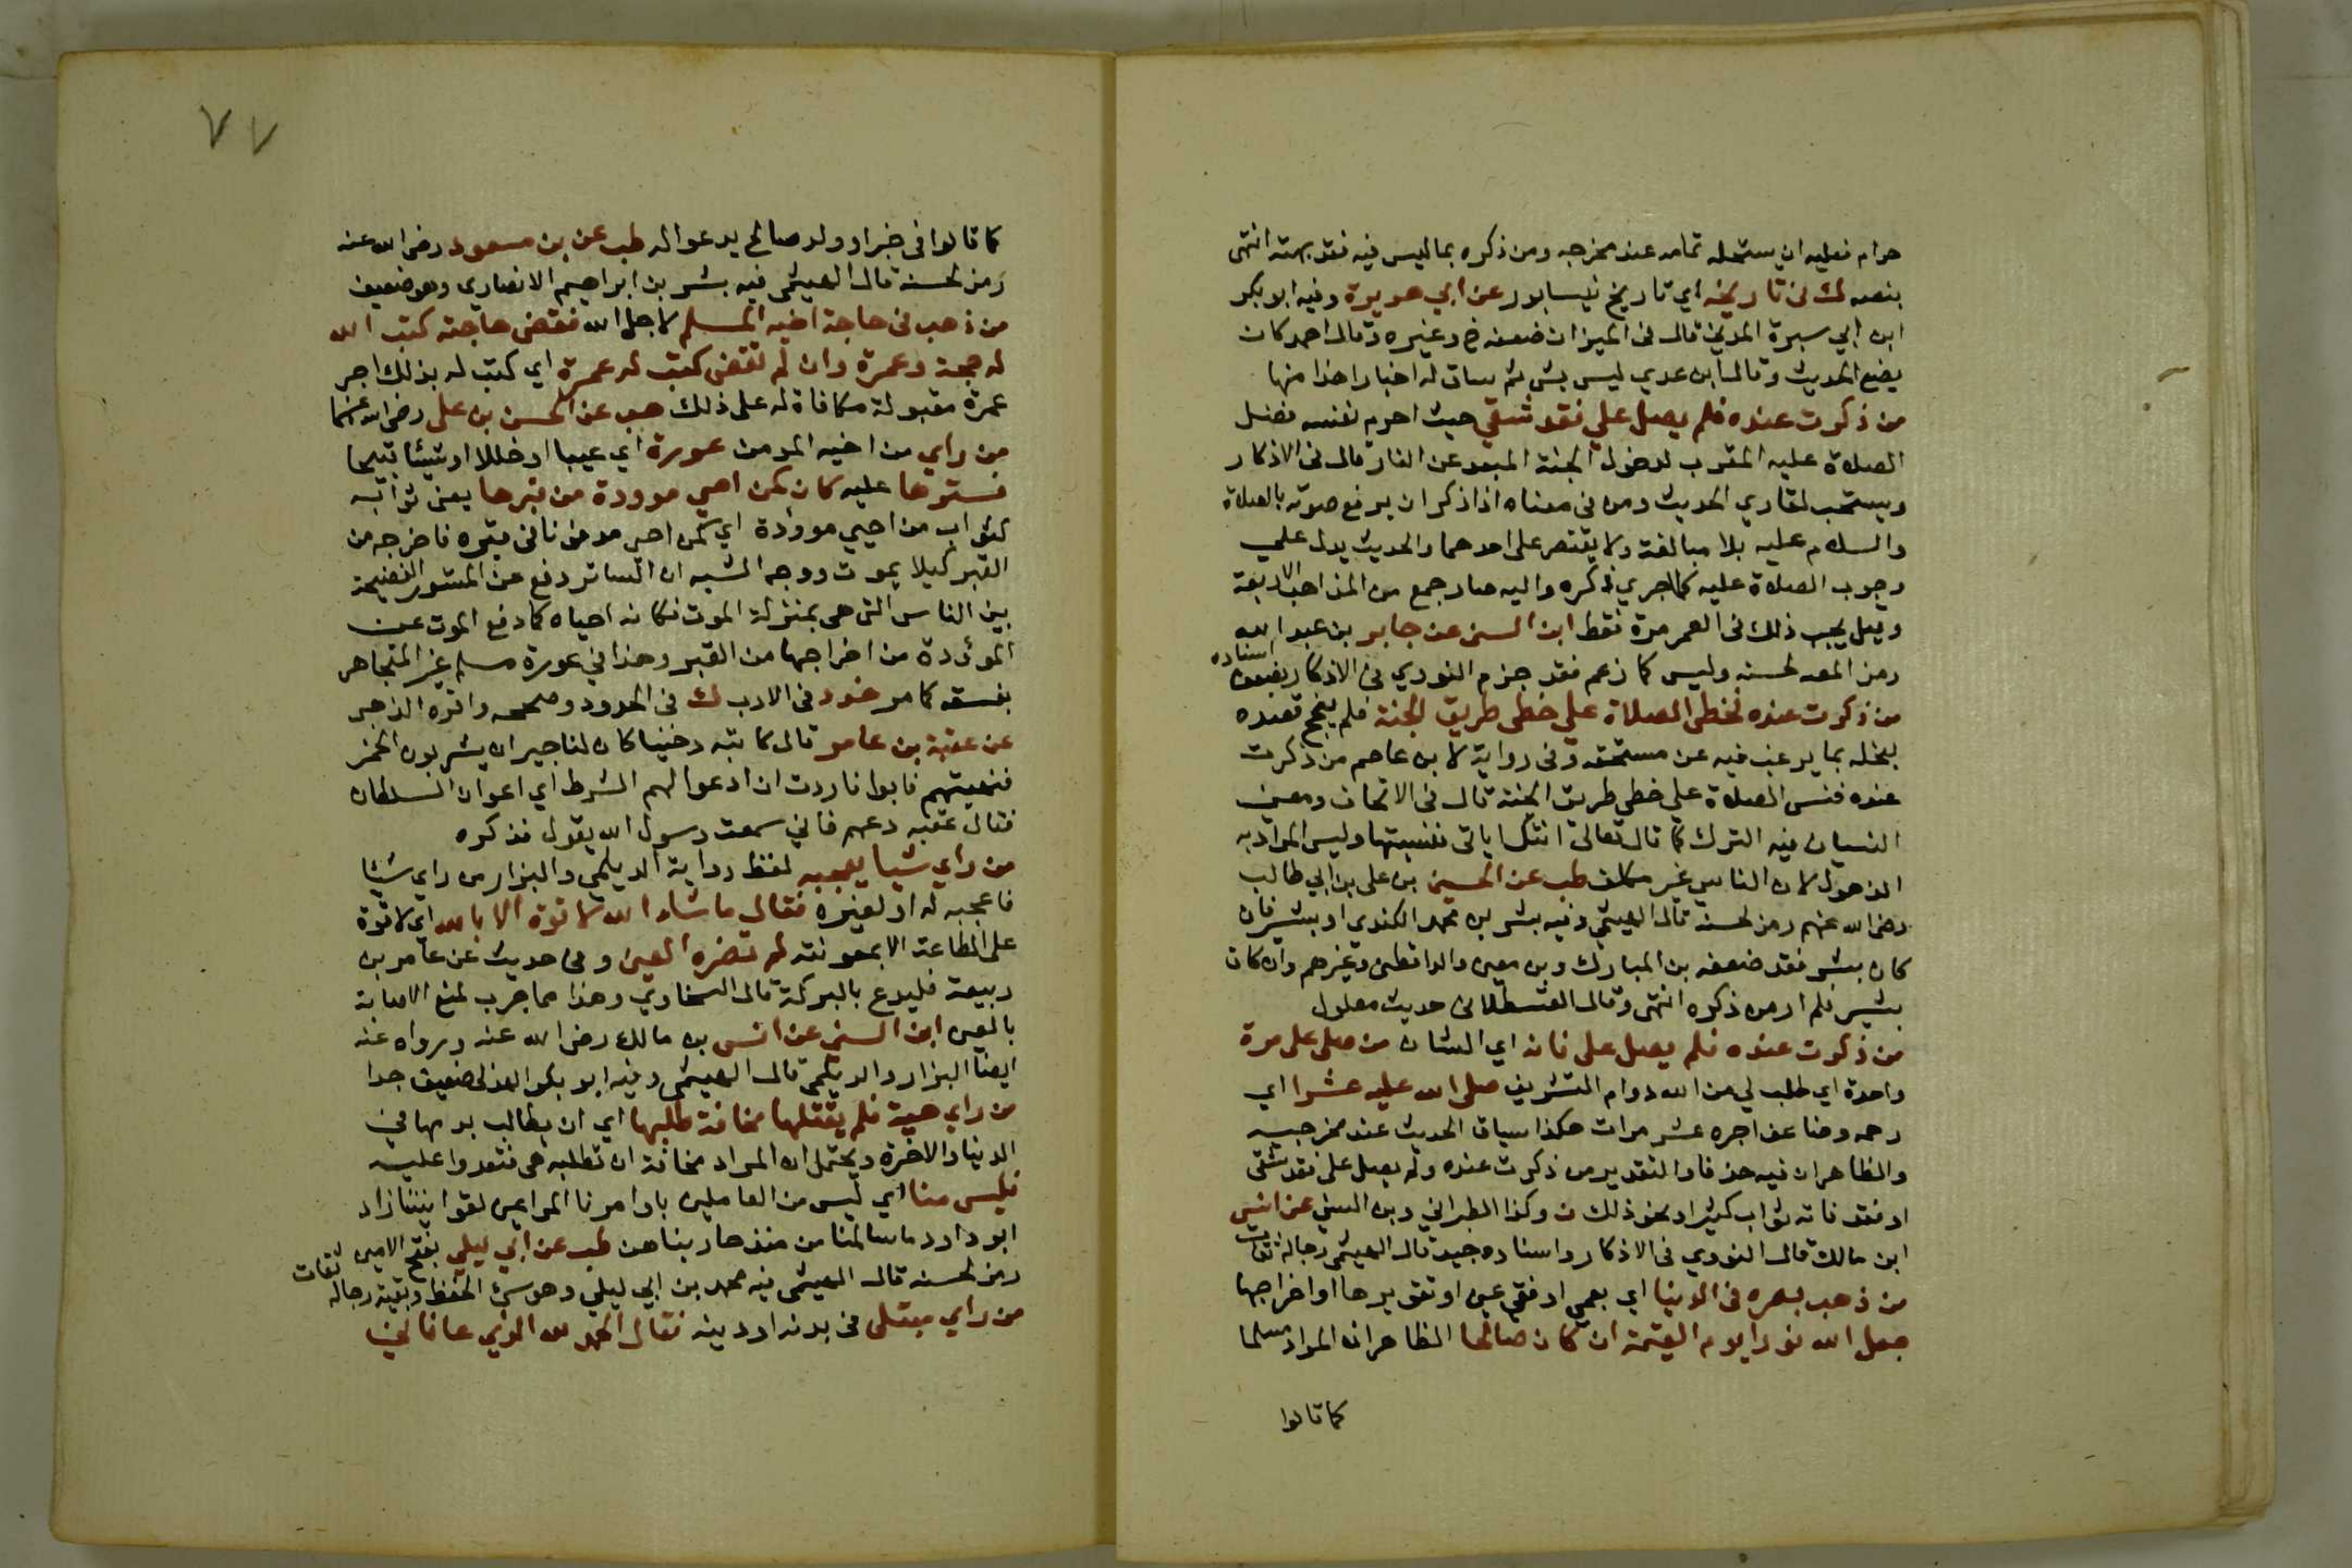 حرام فعليه ان يستحله تمامه عند مخرجه ومن ذكره بما ليس فيه فقد بهته انتهى
بنصه ك في تاريخه اي تاريخ نيسابور عن ابي هريرة وفيه ابو بكر
ابن ابي سبرة المدني قال في الميزان ضعفه خ وغيره وقال احمد كان
يضع الحديث وقال ابن عدي ليس بشي ثم ساق له اخبارا هذا منها
من ذكرت عنده فلم يصل علي فقد شقي حيث احرم نفسه فضل
الصلاة عليه المقرب لدخول الجنة المبعد عن النار قال في الاذكار
ويستحب لقاري الحديث ومن في معناه اذا ذكر ان يرفع صوته بالصلاة
والسلام عليه بلا مبالغة ولا يقتصر على احدهما والحديث يدل علي
وجوب الصلاة عليه كلما جري ذكره واليه صار جمع من المذاهب الاربعة
وقيل يجب ذلك في العمر مرة فقط ابن السني عن جابر بن عبد الله
رمز المص لحسنه وليس كما زعم فقد جزم النووي في الاذكار بضعف اسناده
من ذكرت عنده فخطى الصلاة علي خطى طريق الجنة فلم ينجح قصده
لبخله بما يرغب فيه عن مستحقه وفي رواية لابن عاصم من ذكرت
عنده فنسى الصلاة علي خطي طريق الجنة قال في الاتحاف ومعنى
النسيان فيه الترك كما قال تعالى اتتك اياتي فنسيتها وليس المراد به
الذهول لان الناسي غير مكلف طب عن الحسين بن علي بن ابي طالب
رضي الله عنهم رمز لحسنه قال الهيثمي وفيه بشر بن محمد الكندي او بشير فان
كان بشر فقد ضعفه بن المبارك وبن معين والدارقطني وغيرهم وان كان
بشير فلم ار من ذكره انتهى وقال القسطلاني حديث معلول
من ذكرت عنده فلم يصل علي فانه اي الشان من صلى علي مرة
واحدة اي طلب لي من الله دوام التشريف صلى الله عليه عشرا اي
رحمه وضاعف اجره عشر مرات هكذا سياق الحديث عند مخرجيه
والظاهر ان فيه حذفا والتقدير من ذكرت عنده ولم يصل علي فقد شقى
او فقد فاته ثواب كثير او نحو ذلك ن وكذا الطبراني وبن السني عن انس
ابن مالك قال النووي في الاذكار واسناده جيد قال الهيثمي رجاله ثقات
من ذهب بصره في الدنيا اي بعمي او فقي عين او تقويرها او اخراجها
جعل الله نورا يوم القيمة ان كان صالحا الظاهر ان المراد مسلما
كما قالوا
٧٧
كما قالوا في خبر او ولد صالح يدعو اله طب عن بن مسعود رضي الله عنه
رمز لحسنه قال الهيثمي فيه بشر بن ابراهيم الانصاري وهو ضعيف
من ذهب في حاجة اخيه المسلم لاجل الله فقضى حاجته كتب الله
له حجة وعمرة وان لم تقض كتب له عمرة اي كتب له بذلك اجر
عمرة مقبولة مكافاة له على ذلك هب عن الحسن بن علي رضي الله عنهما
من راي من اخيه المومن عورة اي عيبا او خللا او شيئا قبيحا
فسترها عليه كان كمن احيي موودة من قبرها يعني ثوابه
كثواب من احيي موودة اي كمن احيى مدفونا في قبره فاخرجه من
القبر كيلا يموت ووجه الشبه ان الساتر دفع عن المستور الفضيحة
بين الناس التي هي بمنزلة الموت فكانه احياه كما دفع الموت عن
الموؤدة من اخراجها من القبر وهذا في عورة مسلم غير المتجاهر
بفسقه كما مر خد د في الادب ك في الحدود وصححه واقره الذهبي
عن عقبة بن عامر قال كاتبه دخينا كان لنا جيران يشربون الخمر
فنهيتهم فابوا فاردت ان ادعوا لهم الشرط اي اعوان السلطان
فقال عقبه دعهم فاني سمعت رسول الله يقول فذكره
من راي شيا يعجبه لفظ رواية الديلمي والبزار من راي شيئا
فاعجبه له او لغيره فقال ما شاء الله لا قوة الا بالله اي لا قوة
على الطاعة الا بمعونته لم تضره العين وفي حديث عن عامر بن
ربيعة فليدع بالبركة قال السخاوي وهذا مما جرب لمنع الاصابة
بالعين ابن السني عن انس بن مالك رضي الله عنه ورواه عنه
ايضا البزار والديلمي قال الهيثمي وفيه ابو بكر الهذلي ضعيف جدا
من راي حية فلم يقتلها مخافة طلبها اي ان يطالب بدمها في
الدنيا والاخرة ويحتمل ان المراد مخافة ان تطلبه هي فتعدوا عليه
فليس منا اي ليس من العاملين باوامرنا المراعين لقوانيننا زاد
ابو داود ما سالمنا من منذ حاربناهن طب عن ابي ليلي بفتح الامين
رمز لحسنه قال الهيثمي فيه محمد بن ابي ليلي وهو سئ الحفظ وبقية رجاله ثقات
من راي مبتلى في بدنه او دينه فقال الحمد لله الذي عافاني